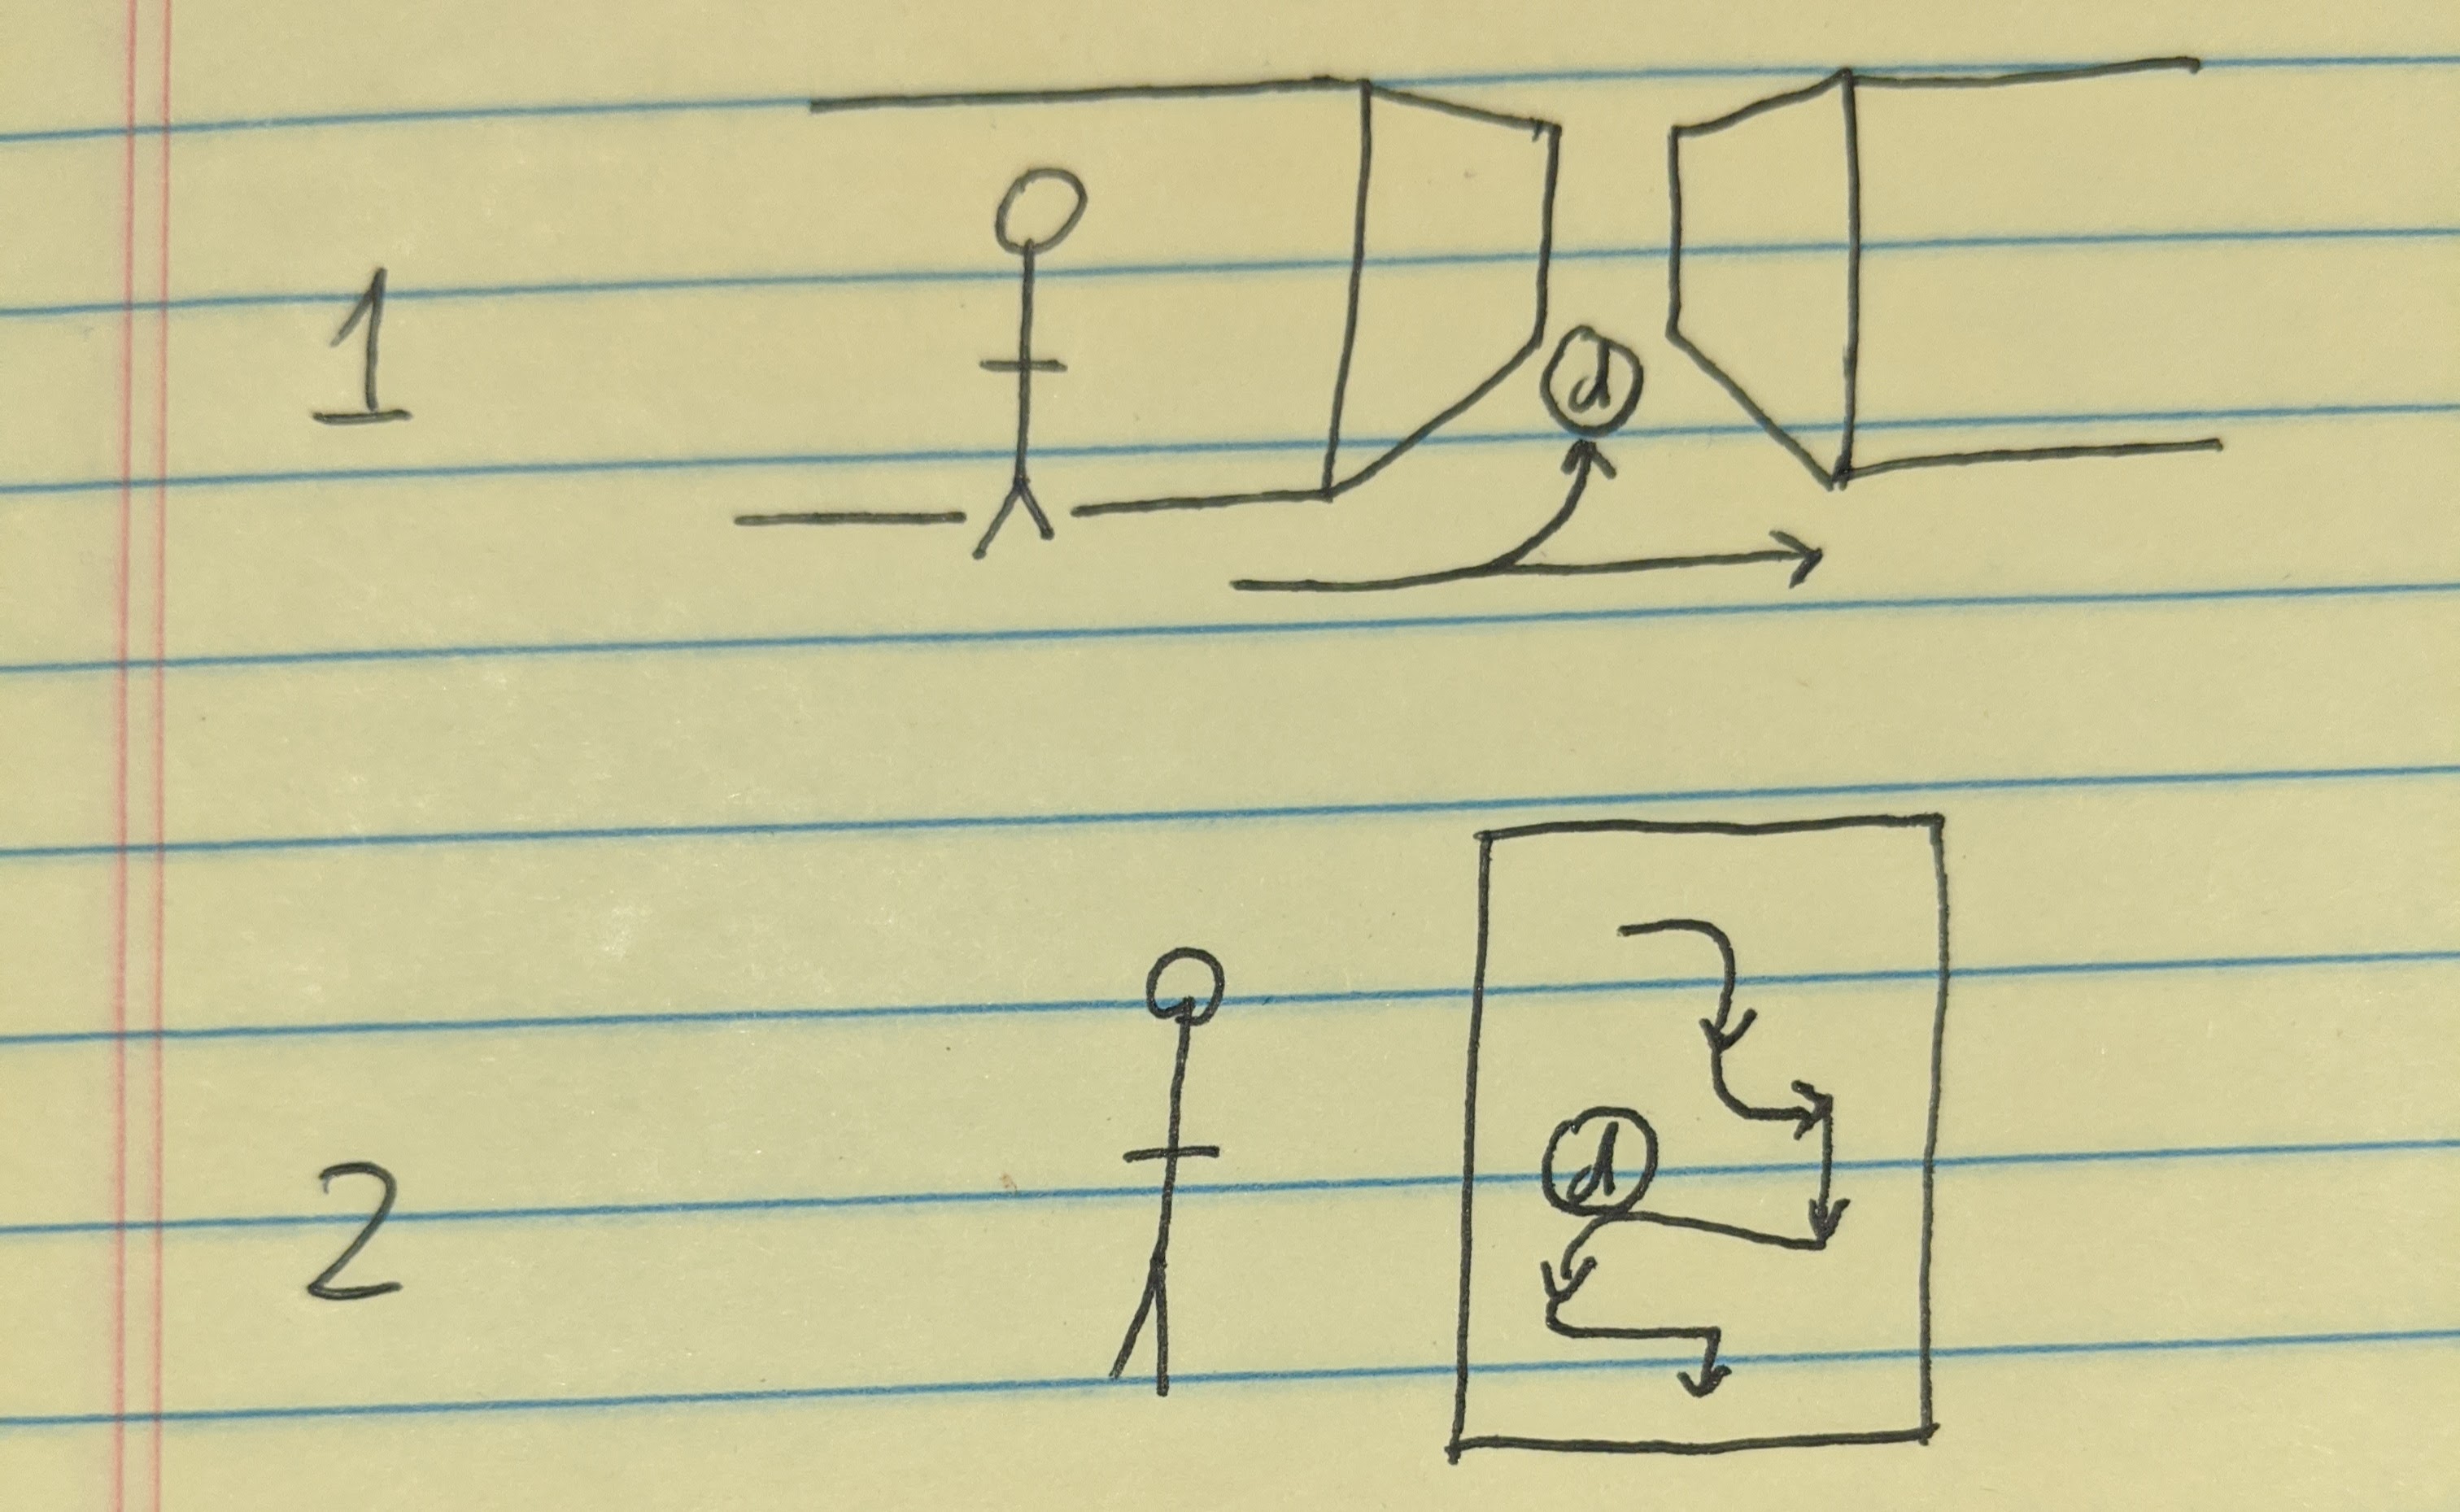 1
d
2
d